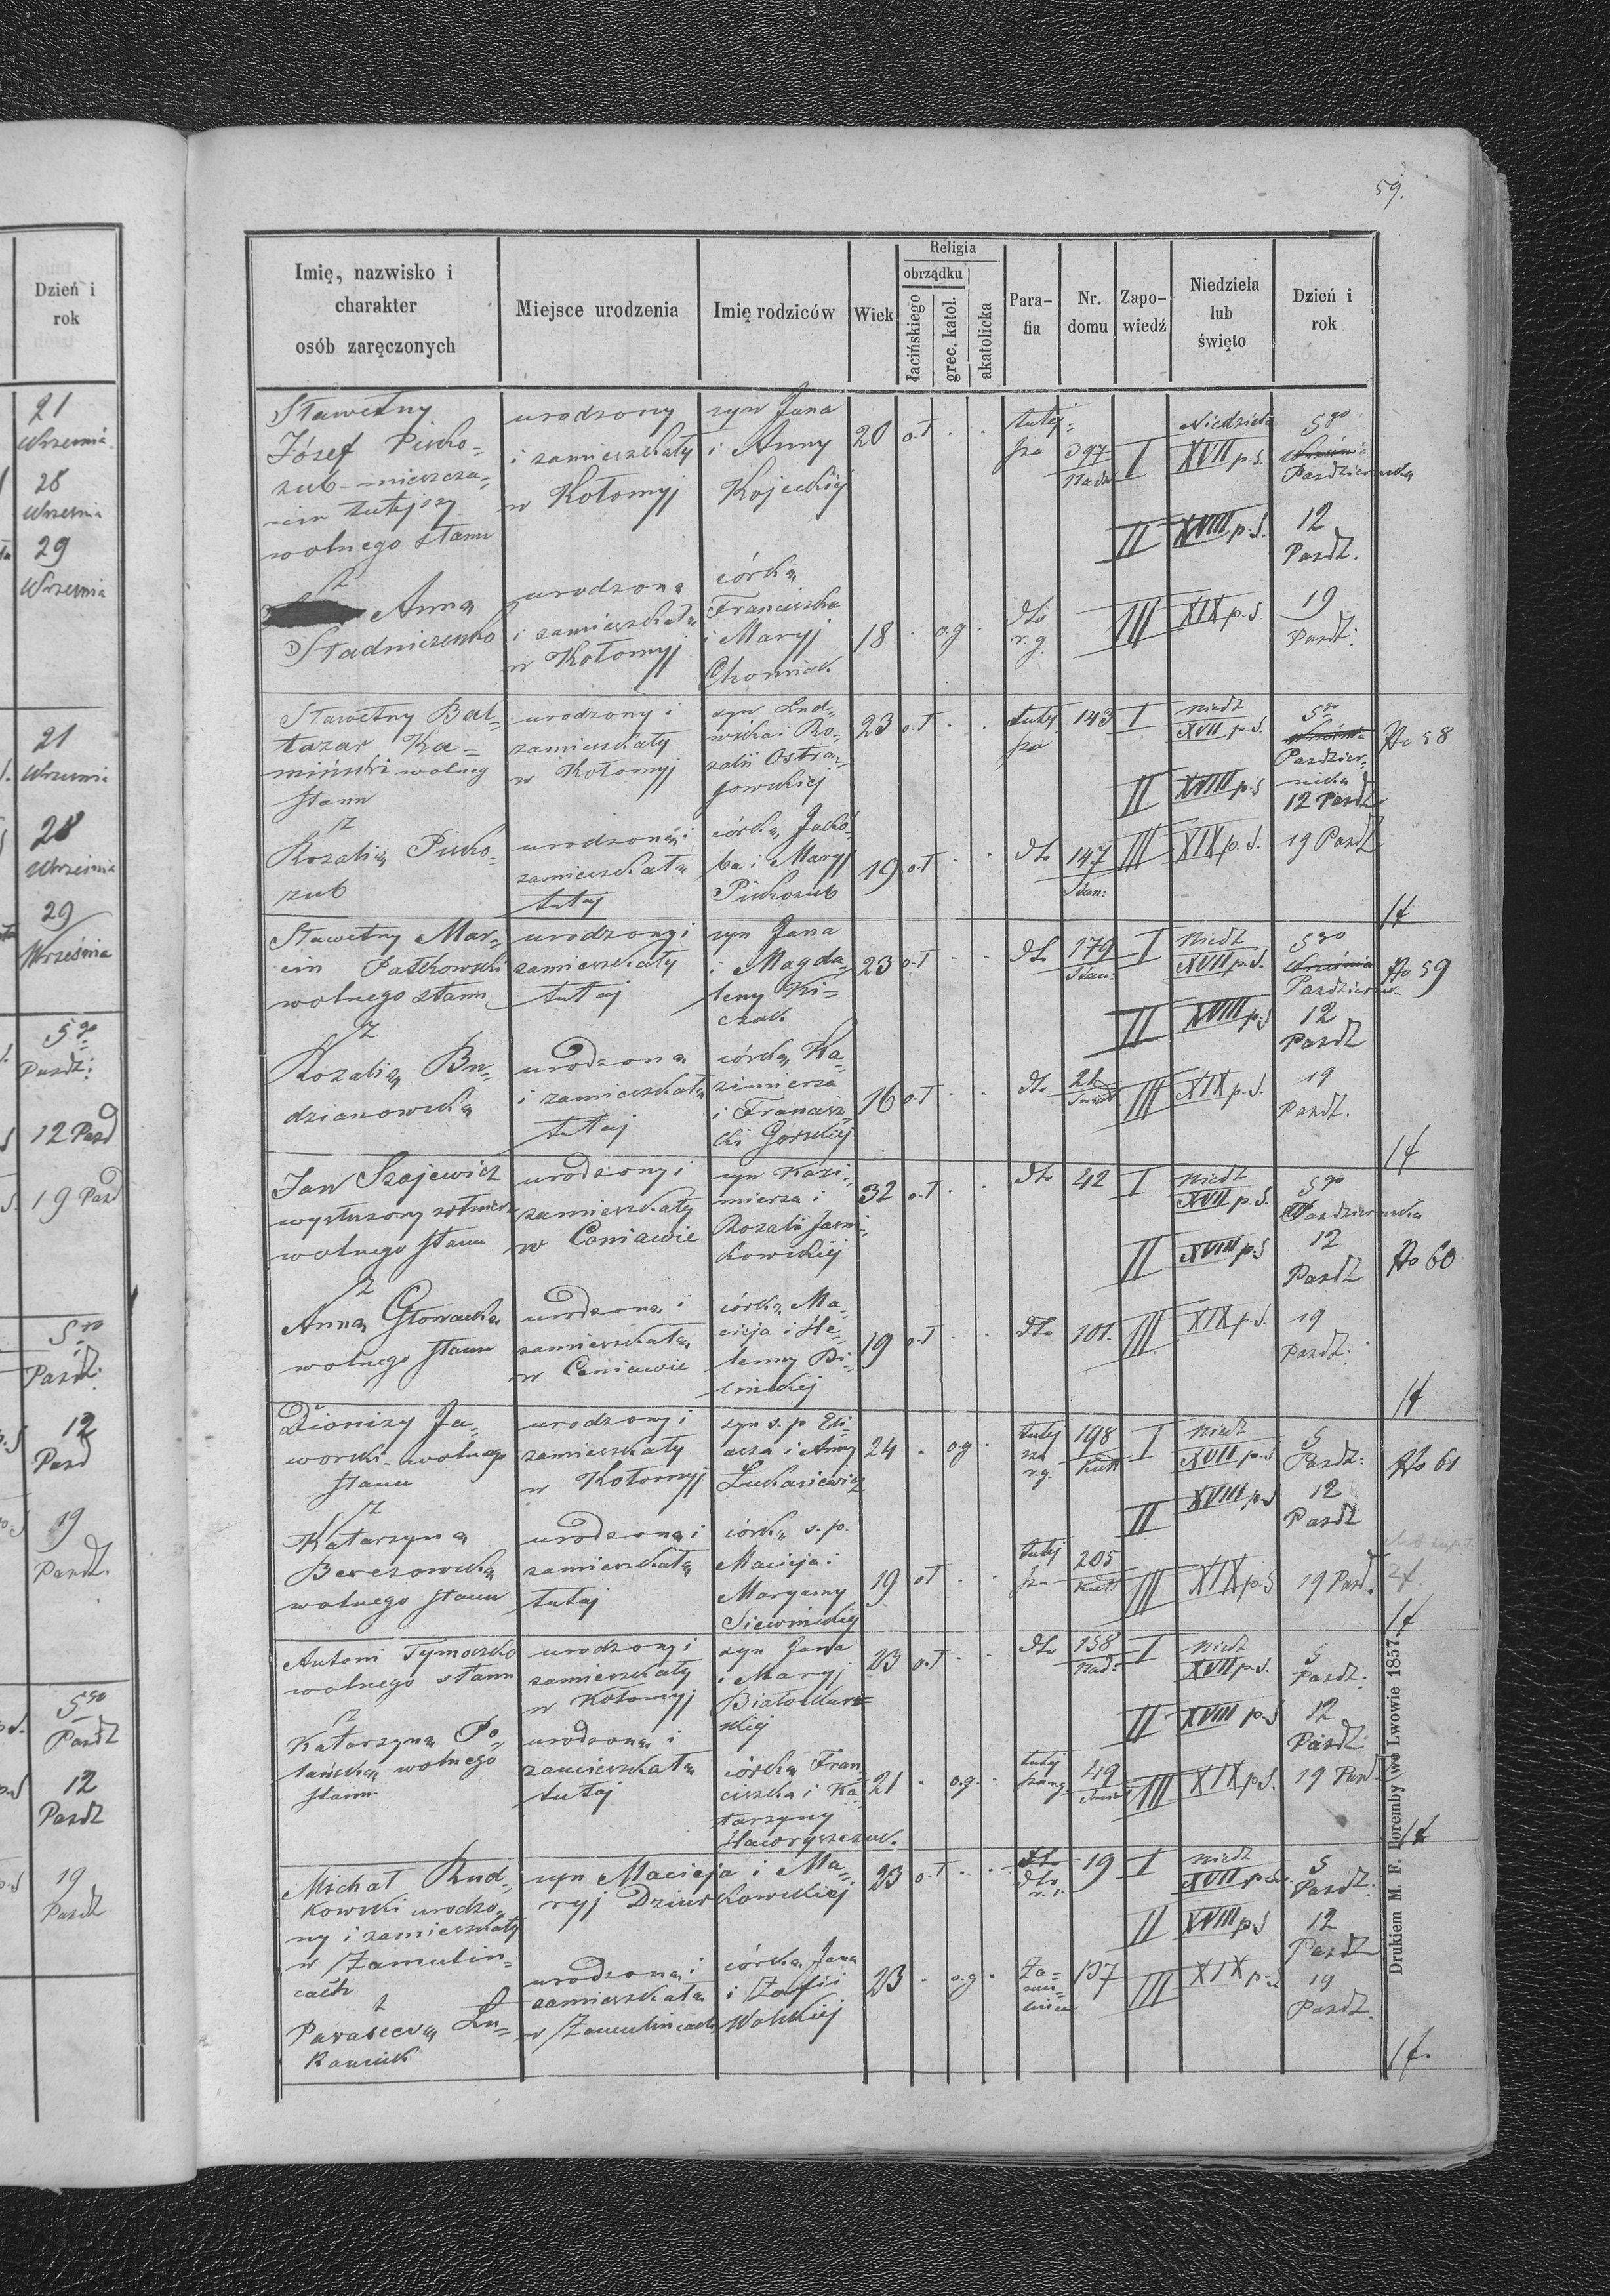 59.
Dzień i
rok
21
Września
28
Września
29
Września
21
Września
28
Września
29
Września
5go
Pazdz:
12 Pazd
19 Pazd
5go
Pazdz:
12
Pazd
19
Pazdz.
5go
Pazdz
12
Pazdz
19
Pazdz
Imię, nazwisko i
charakter
osób zaręczonych
Miejsce urodzenia
Imię rodziców
Wiek
Religia
obrządku
łacińskiego
grec. katol.
akatolicka
Para-
fia
Nr.
domu
Zapo-
wiedź
Niedziela
lub
święto
Dzień i
rok
Sławetny
Józef Pisko-
zub - mieszcza-
nin tutejszy
wolnego stanu
urodzony
i zamieszkały
w Kołomyj
syn Jana
i Anny
Kojeckiej
20 o.ł
tutej-
sza
397
Nadw
I
Niedziela
XVII p.S.
5go
Września
Pazdziernika
II XVIII p.S.
12
Pazdz.
z
Anną
Stadniczenko
urodzoną
i zamieszkałą
w Kołomyj
córką
Franciszka
i Maryj
Chomiak
18 o.g
dto
r.g.
III XIX p.S.
19
Pazdz:
Sławetny Bal-
tazar Ka-
miński wolneg
stanu
urodzony i
zamieszkały
w Kołomyj
syn Lud-
wika i Ro-
zalii Ostra-
23 o.ł
tutej
sza
143 I
Niedz
XVII p.S.
5go
Września
Pazdzier-
nika
No 58
II XVIII p.S
12 Pazdz
z
Rozalią Pisko-
zub
urodzoną i
zamieszkałą
tutaj
córką Jakó-
ba i Maryj
Piskozub
19 o.ł
dto
147
III XIX p.S.
19 Pazdz
1f
Sławetny Mar-
cin Patkowski
wolnego stanu
urodzony i
zamieszkały
tutaj
syn Jana
i Magda-
leny Ki-
czak
23 o.ł
dto
179
I
Niedz
XVII p.S.
5go
Września
Pazdziernik
No 59
II XVIII p.S
12
Pazdz
z
Rozalią Bu-
dzianowską
urodzoną
i zamieszkałą
tutaj
córką Ka-
zimierza
i Francisz-
ki Górskiej
16 o.ł
dto
21
III XIX p.S.
19
Pazdz.
1f
Jan Szajewicz
wysłużony żołnierz
wolnego stanu
urodzony i
zamieszkały
w Ceniawie
syn Kazi-
mierza i
Rozalii Jasni-
kowskiej
32 o.ł
dto 42 I
Niedz
XVII p.S.
5go
Pazdziernika
II XVIII p.S
12
Pazdz
No 60
z
Anną Głowacką
wolnego stanu
urodzoną i
zamieszkałą
w Ceniawie
córką Ma-
cieja i He-
lenny Bi-
19 o.ł
dto 101. III XIX p.S.
19
Pazdz:
1f
Dionizy Ja-
worski - wolnego
stanu
urodzony i
zamieszkały
w Kołomyj
syn s.p. Eli-
asza i Anny
Łukasiewicz
24 o.g
tutej
sza
r.g.
198
Kutt
I
Niedz
XVII p.S
5
Pazdz:
No 61
II XVIII p.S
12
Pazdz
z
Katarzyną
Berezowską
wolnego stanu
urodzoną i
zamieszkałą
tutaj
córką s.p.
Macieja i
Maryanny
Siewińskiej
19 o.ł
tutej
sza
205
Kutt
III XIX p.S
19 Pazd.
2f.
1f
Antoni Tymoczko
wolnego stanu
urodzony i
zamieszkały
w Kołomyj
syn Jana
i Maryj
23 o.ł
dto
158
Nad:
I
Niedz
XVII p.S.
5
Pazdz:
II XVIII p.S
12
Pazdz
z
Katarzyną Po-
lańską wolnego
stanu
urodzoną i
zamieszkałą
tutaj
córką Fran-
ciszka i Ka-
tarzyny
Hawryszczuk.
21 o.g.
tutej
sza r.g.
49
III XIX p.S.
19 Pazd.
1f
Michał Rud-
kowski urodzo-
ny i zamieszkały
w Zamulin-
cach
syn Macieja i Ma-
ryj Dziurkowskiej
23 o.ł
dto
dto
19 I
Niedz
XVII p.S.
5
Pazdz.
II XVIII p.S
12
Pazdz
z
Parascevą Łu-
urodzoną i
zamieszkałą
w Zamulincach
córką Jana
i Zofii
Wolskiej
23 o.g
137 III XIX p.S
19
Pazdz.
1f.
Drukiem M. F. Poremby we Lwowie 1857.